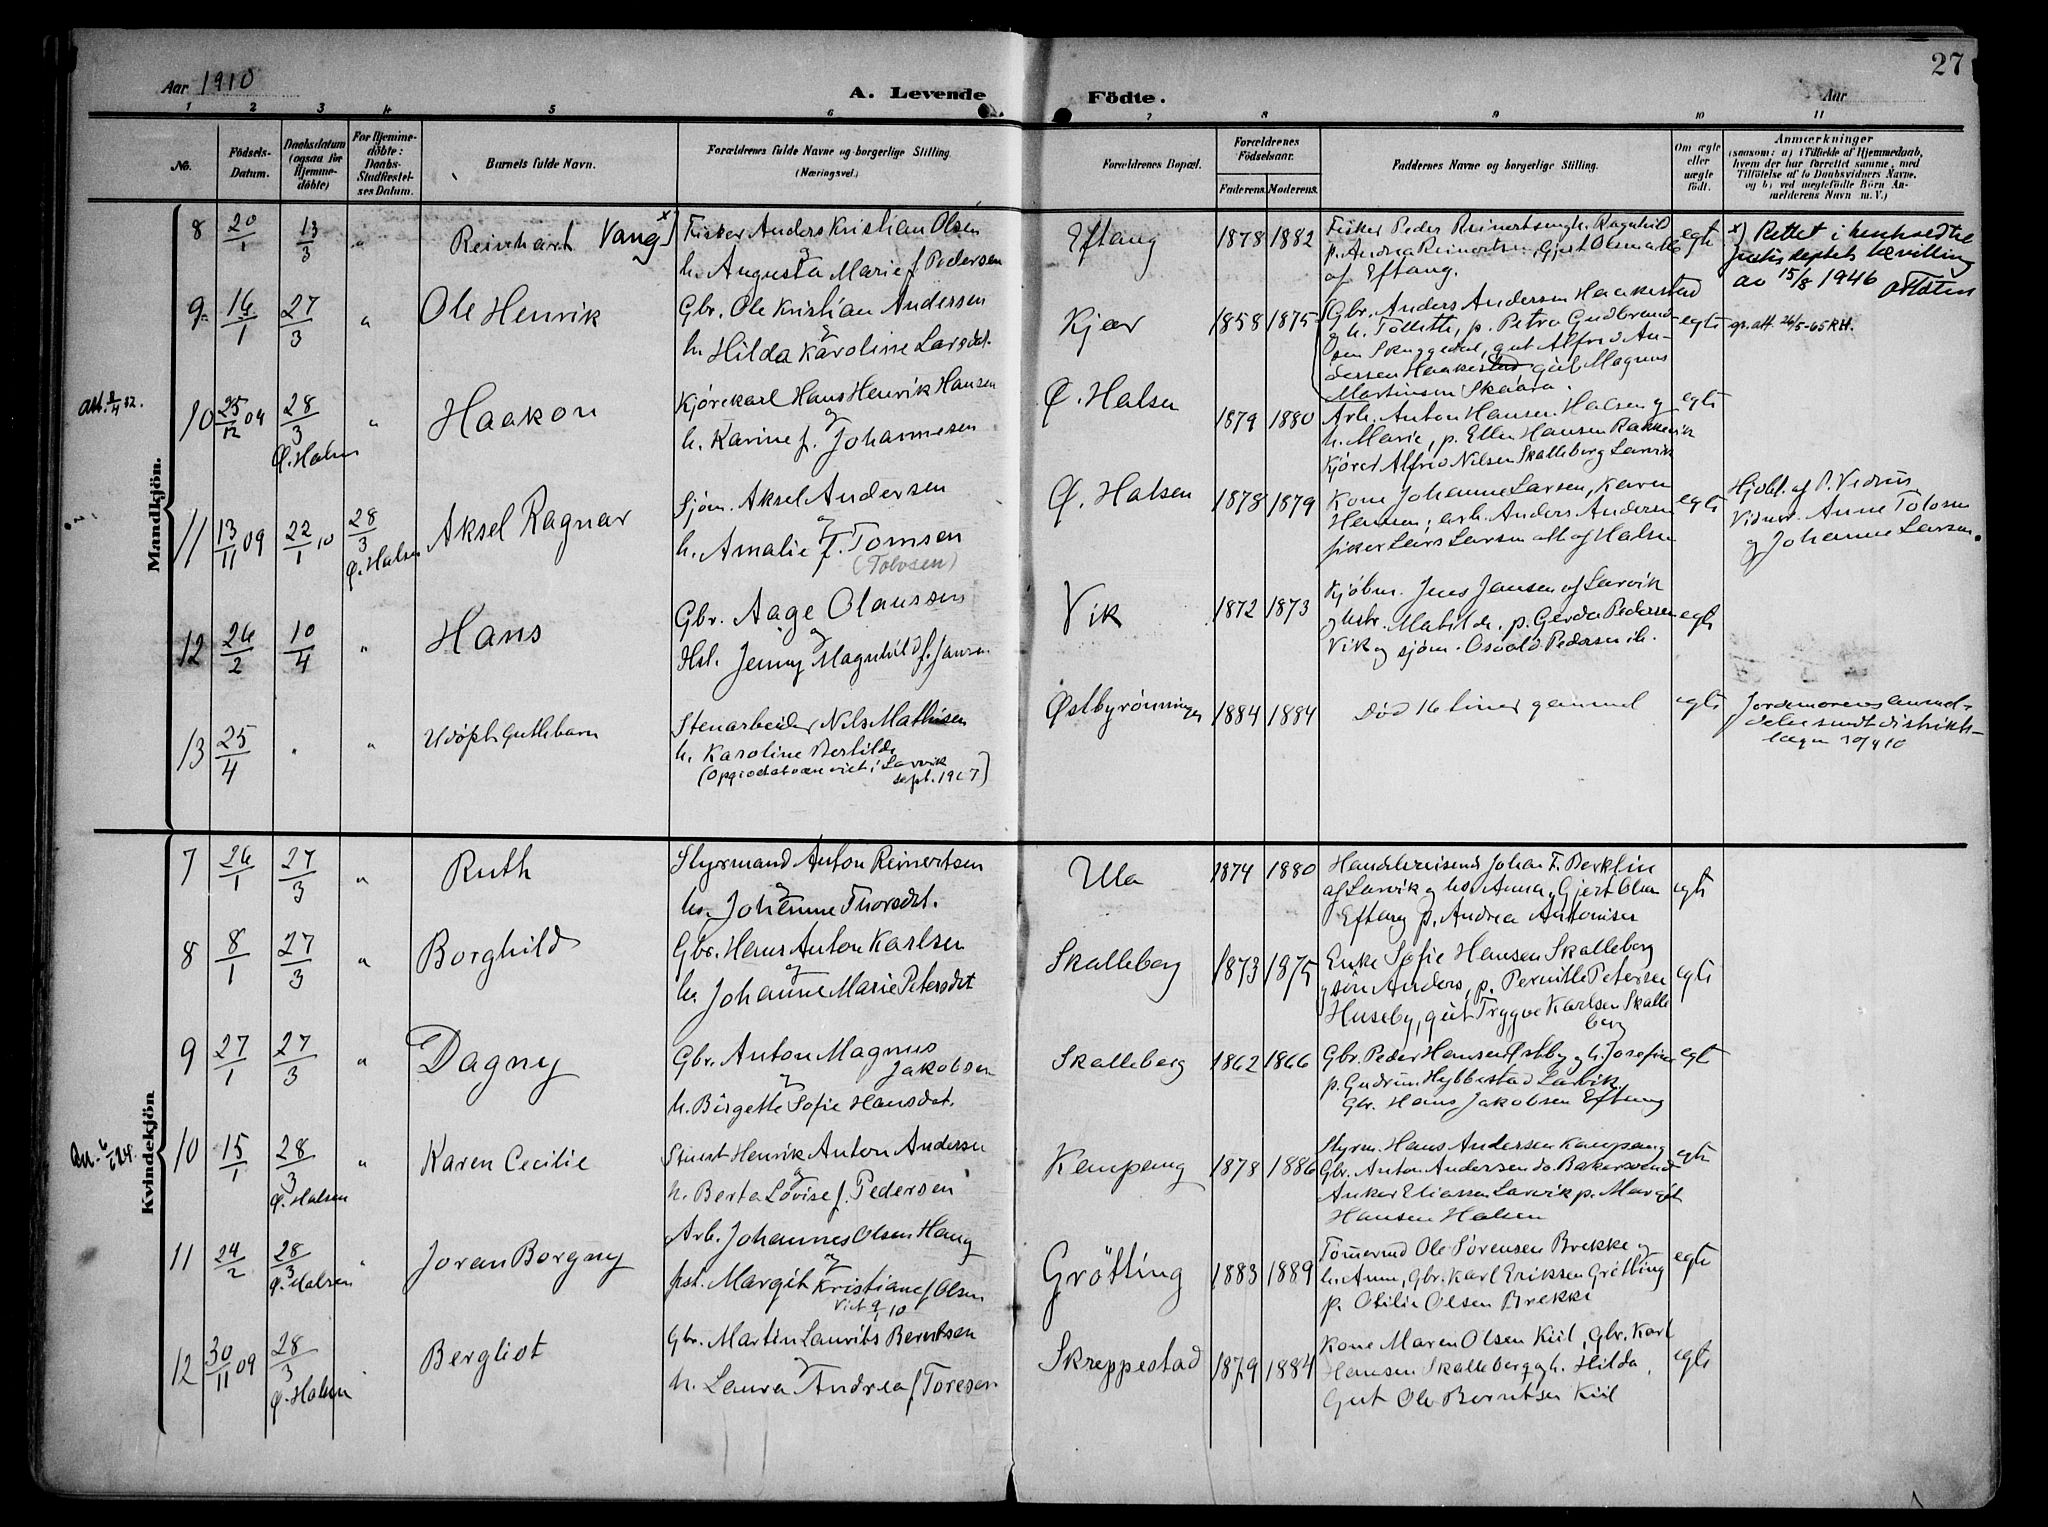 27
Aar 1910
A. Levende Födte.
Aar
1 2 3 4 5 6 7 8 9 10 11
No.
Födsels-Datum.
Daabsdatum (ogsaa for Hjemmedöbte)
For Hjemmedöbte: Daabs-Stadfæstelses Datum.
Barnets fulde Navn.
Forældrenes fulde Navne og borgerlige Stilling. (Næringsvei.)
Forældrenes Bopæl.
Forældrenes Födselsaar.
Faderens. Moderens.
Faddernes Navne og borgerlige Stilling.
Om ægte eller uægte födt.
Anmærkninger
(saasom: a) i Tilfælde af Hjemmedaab, hvem der har forrettet samme, med Tilföielse af to Daabsvidners Navne. og b) ved uægtefödte Börn Anmelderens Navn m. V.)
Mandkjön.
8 20/1 13/3 " Reinhart Vang x)
Fisker Anders Kristian Olsen
og
h. Augusta Marie f. Pedersen
Eftang 1878 1882
Fisker Peder Reinertsen h. Ragnhild
p. Andrea Reinertsen, Gjert Olsen alle
af Eftang.
egte
x) Rettet i henhold til
justisdeptets bevilling
av 15/8 1946
9 16/1 27/3 " Ole Henrik
Gbr. Ole Kristian Andersen
og
h. Hilda Karoline Larsdat.
Kjær 1858 1875
Gbr. Anders Andersen Haakestad
og h. Tollette, p. Petra Gudbrand-
sen Skuggedal, gut Alfred An-
dersen Haakestad gut Magnus
Martinsen Skaara.
egte
gr. att. 26/5-65 RH.
att. 2/4 32.
10 25/12 09 28/3 Ø. Halsen " Haakon
Kjørekarl Hans Henrik Hansen
og
h. Karine f. Johannesen
Ø. Halsen 1879 1880
Arb. Anton Hansen Halsen og
h. Marie, p. Ellen Hansen Rakkevik
Kjører Alfred Nilsen Skalleberg Larvik
egte
11 13/11 09 22/1 10 28/3 Ø. Halsen Aksel Ragnar
Sjøm. Aksel Andersen
og
h. Amalie f. Tomsen
(Tolvsen)
Ø. Halsen 1878 1879
Kone Johanne Larsen, Karen
Hansen, arb. Anders Andersen
fisker Lars Larsen alle af Halsen
egte
Hjdbt. af P. Vedrus
Vidner. Anne Tolvsen
og Johanne Larsen.
12 26/2 10/4 " Hans
Gbr. Aage Olaussen
og
Hst. Jenny Magnhild f. Jansen
Vik 1872 1873
Kjøbm. Jens Jansen af Larvik
og hstr. Matilde, p. Gerda Pedersen
Vik og sjøm. Osvald Pedersen ib.
egte
13 25/4 " " Udøpt Guttebarn
Stenarbeider Nils Mathisen
h. Karoline Bertilde
(Opgiodat være viet i Larvik
sept. 1907)
Østbyrønningen 1884 1884
Død 16 timer gammel
egte
Jordmorens anmel-
delse sendt distrikts-
lægen 30/4 10
Kvindekjön
7 26/1 27/3 " Ruth
Styrmand Anton Reinertsen
og
h. Johanne Thorsdat.
Ula 1874 1880
Handelsreisend Johan F. Berklin
af Larvik og h. Anna, Gjert Olsen
Eftang p. Andrea Antonisen
egte
8 8/1 27/3 " Borghild
Gbr. Hans Anton Karlsen
og
h. Johanne Marie Petersdat
Skalleberg 1873 1875
Enke Sofie Hansen Skalleberg
og søn Anders, p. Pernille Petersen
Huseby, gut Trygve Karlsen Skalle
berg
egte
9 27/1 27/3 " Dagny
Gbr. Anton Magnus
Jakobsen
og
h. Birgette Sofie Hansdat.
Skalleberg 1862 1866
Gbr. Peder Hansen Østby og h. Josefine
p. Gudrun Hybbestad Larvik.
Gbr. Hans Jakobsen Eftang
egte
10 15/1 28/3 Ø. Halsen " Karen Cecilie
Stuert Henrik Anton Andersen
og
h. Berta Lovise f. Pedersen
Kampang 1878 1886
Styrm. Hans Andersen Kampang
Gbr. Anton Andersen do. Bakersvend
Anker Eliassen Larvik p. Margit
Hansen Halsen
egte
11 24/2 28/3 Ø. Halsen " Joran Borgny
Arb. Johannes Olsen Haug
og
hst. Margit Kristiane f. Olsen
Viet 9/10
Grøtting 1883 1889
Tømermd Ole Sørensen Brekke og
h. Anne, Gbr. Karl Eriksen Grøtting
p. Otilie Olsen Brekke
egte
12 30/11 09 28/3 Ø. Halsen " Bergliot
Gbr. Martin Laurits Berntsen
og
h. Laura Andrea f. Toresen
Skreppestad 1879 1884
Kone Maren Olsen Kiil, Gbr. Karl
Hansen Skalleberg og h. Hilda,
Gut Ole Berntsen Kiil
egte